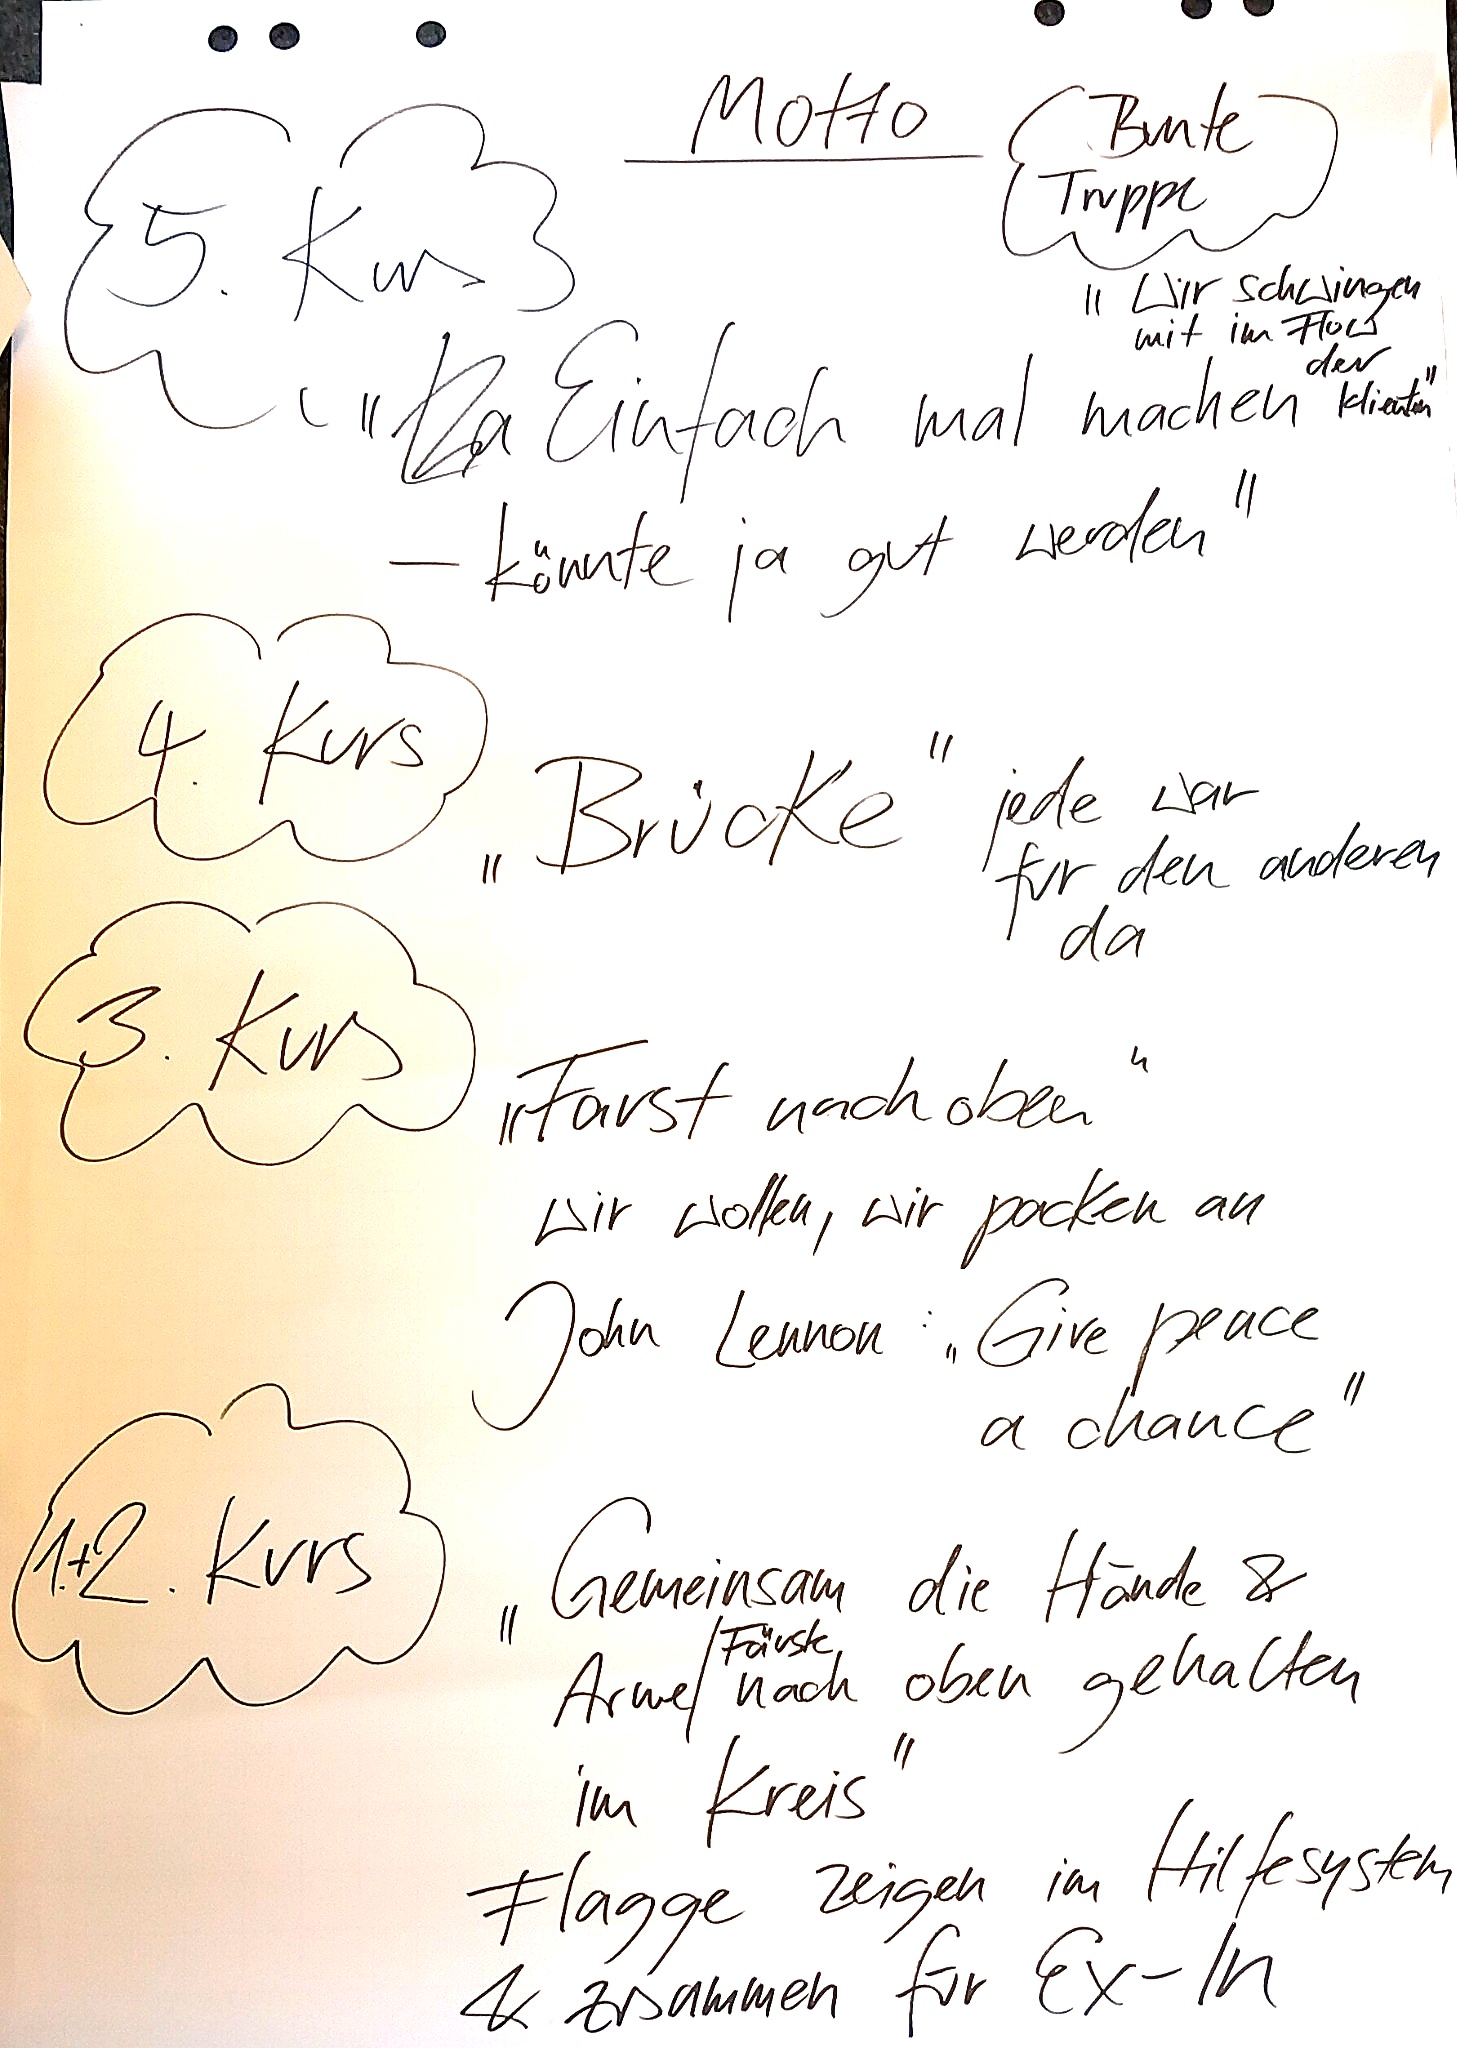 Motto
Bunte
Truppe
5. Kurs
"Wir schwingen
mit im Flow
der
Klienten"
"Einfach mal machen
– könnte ja gut werden"
4. Kurs
"Brücke" jede war
für den anderen
da
3. Kurs
"Faust nach oben"
wir wollen, wir packen an
John Lennon: "Give peace
a chance"
1.+2. Kurs
"Gemeinsam die Hände &
Arme/Fäuste nach oben gehalten
im Kreis"
Flagge zeigen im Hilfesystem
& zusammen für Ex-In